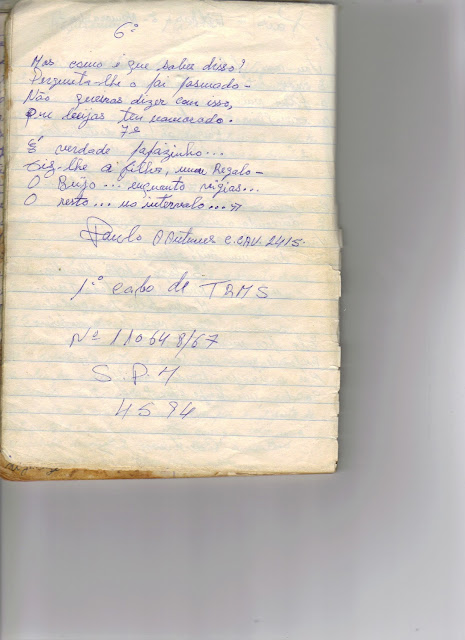 6º
Mas como é que sabes disso?
Pergunta-lhe o pai pasmado-
Não queiras dizer com isso,
que beijas teu namorado.
7º
É verdade papazinho...
Diz-lhe a filha, num Regalo-
O Beijo... enquanto vigias...
O resto... no intervalo...
Paulo Antunes C.CAV. 2415.
1º cabo de TRMS
Nº 110648/67
S. P. M
4594